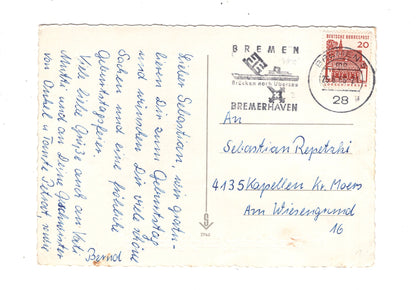 Lieber Sebastian, wir gratu-
lieren Dir zum Geburtstag
und wünschen Dir viele schöne
Sachen und eine fröhliche
Geburtstagsfeier.
Viele liebe Grüße auch an Vati
Mutti und an Deine Großmutter
von Onkel u Tante
Bernd
BREMEN
Brücken nach Übersee
BREMERHAVEN
DEUTSCHE BUNDESPOST
20
BREMEN
28
An
Sebastian Repetzki
4135 Kapellen Kr. Moers
Am Wiesengrund
16